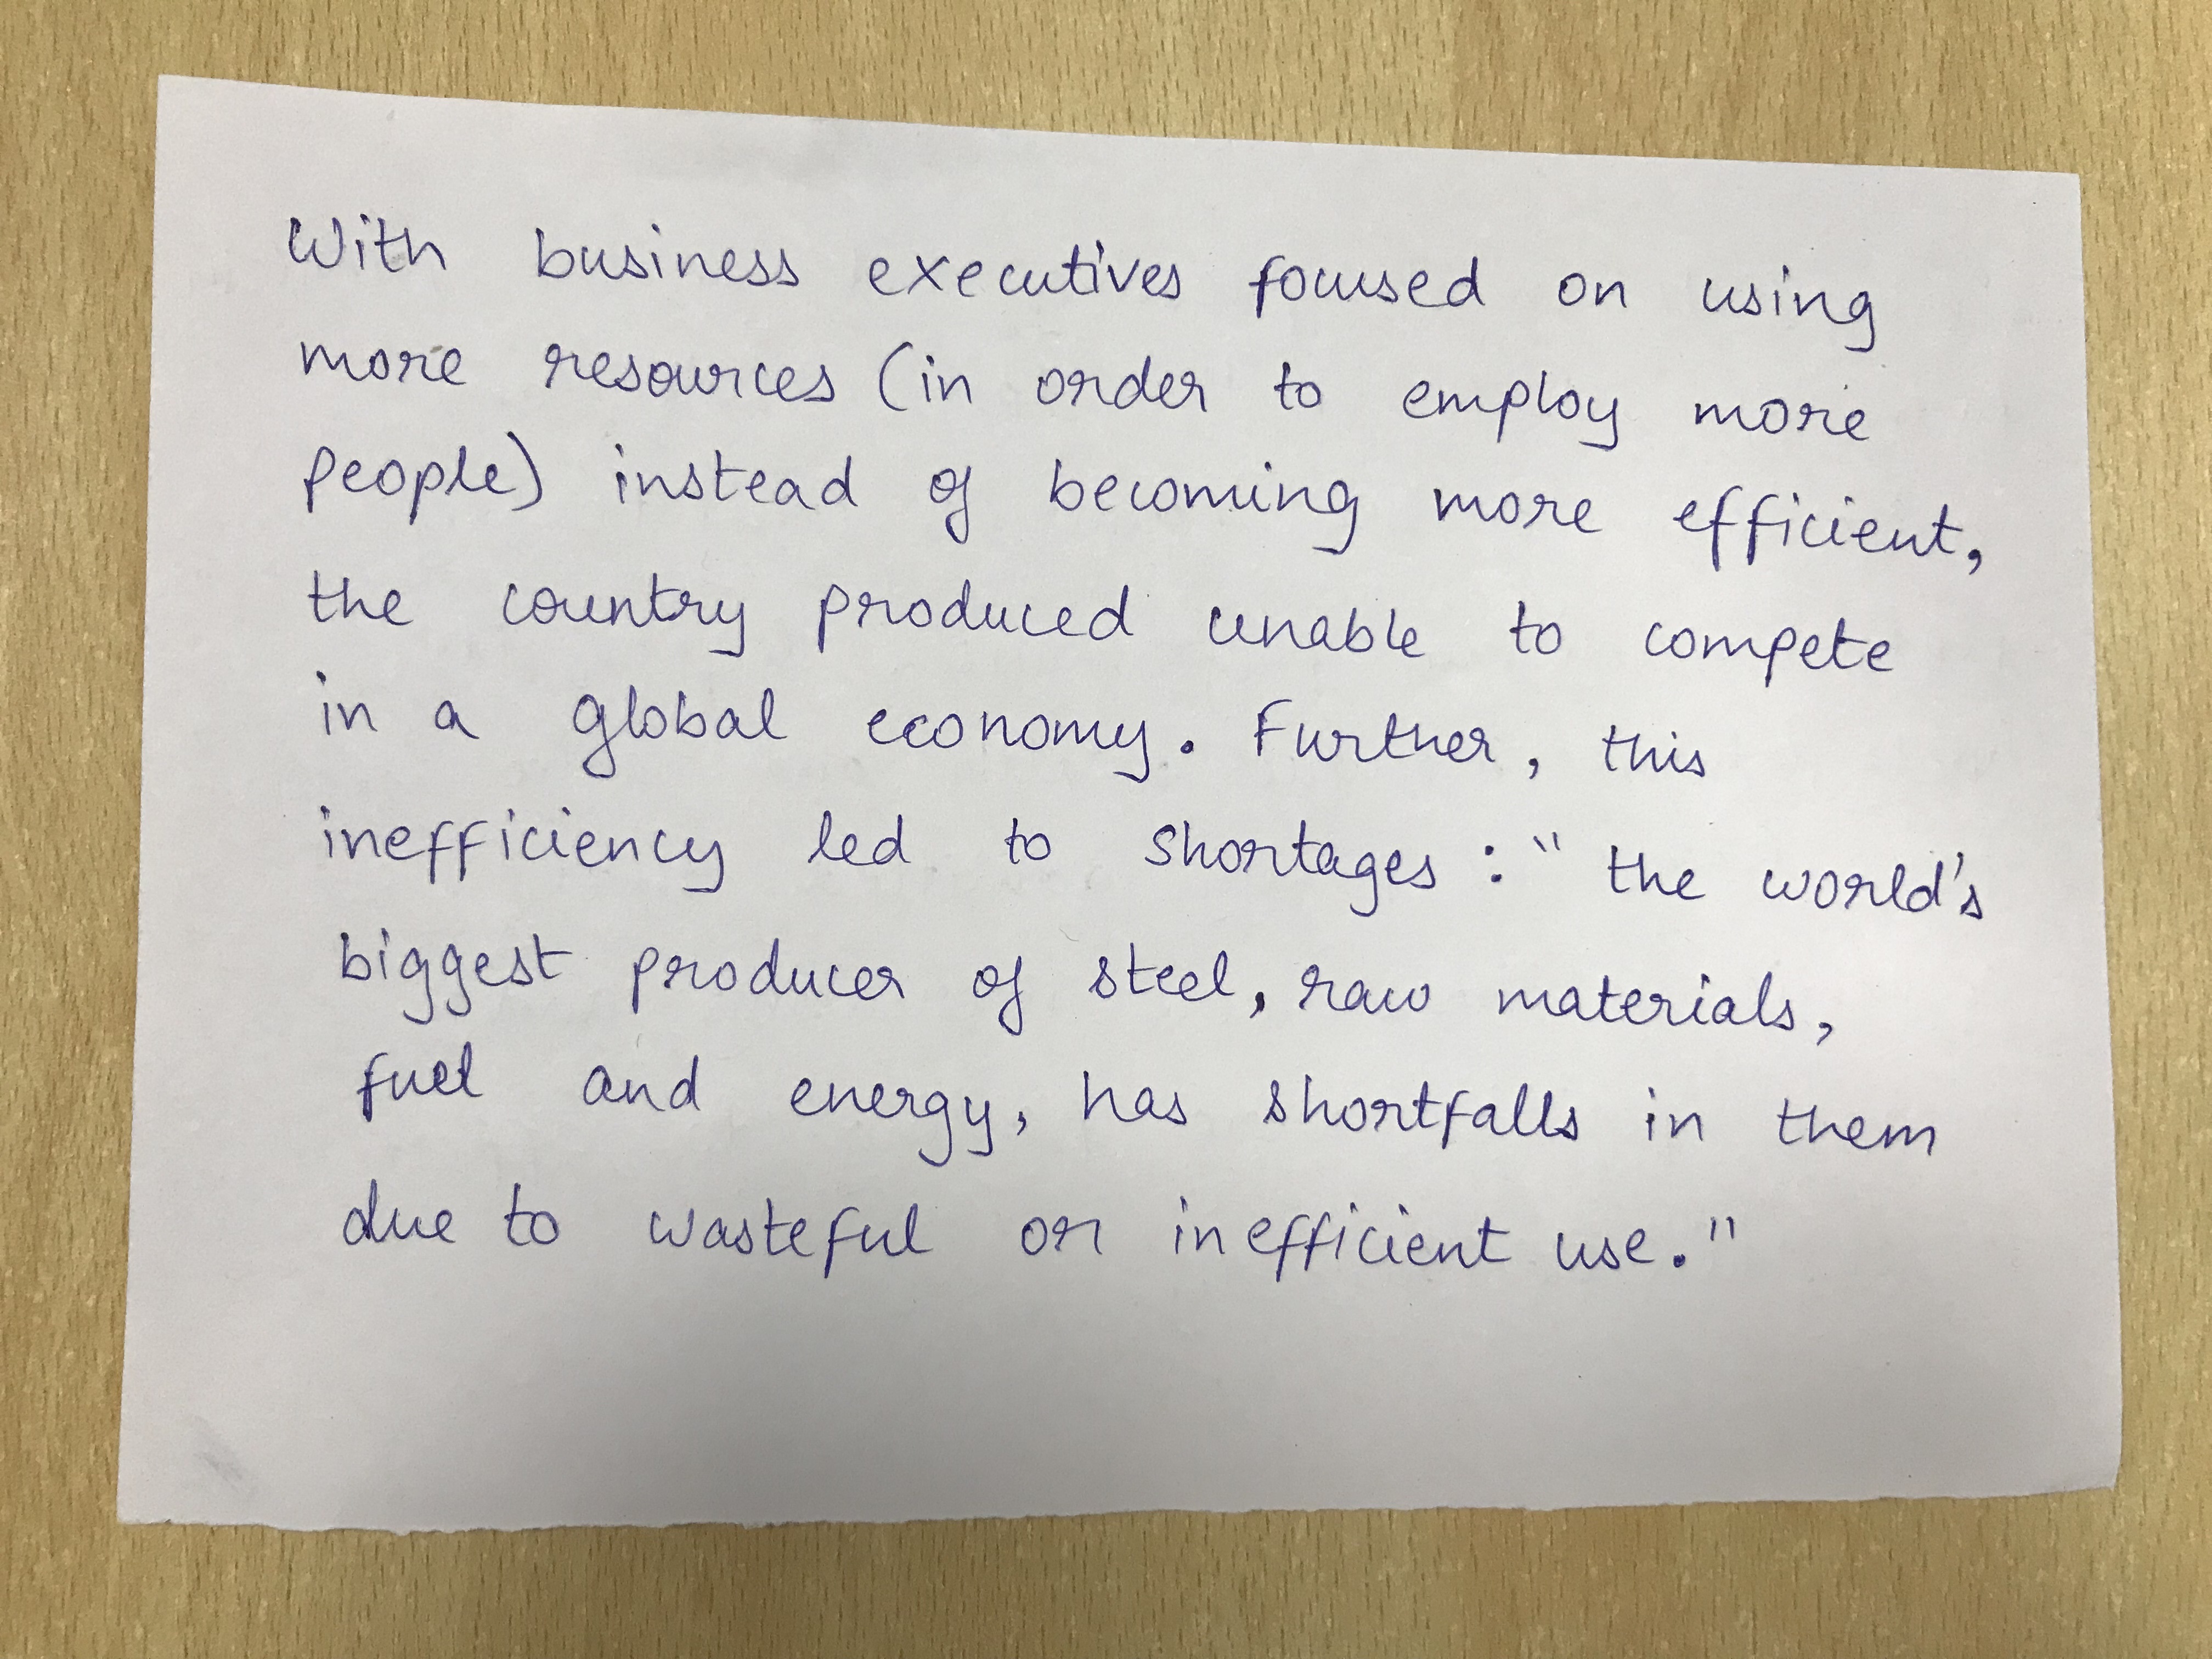 With business executives focused on using
more resources (in order to employ more
people) instead of becoming more efficient,
the country produced unable to compete
in a global economy. Further, this
inefficiency led to shortages : "the world's
biggest producer of steel, raw materials,
fuel and energy, has shortfalls in them
due to wasteful or inefficient use."